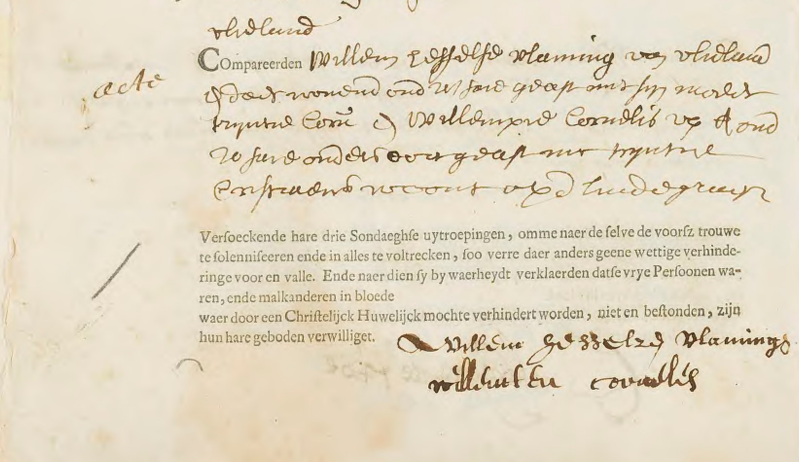 vlieland
acte
Compareerden Willem Hesselse vlaming van vlieland
& daer wonend oud 25 Jare geast met sijn moeder
trijntie Corn & Willempie Cornelis van A oud
20 Jare ouders doot geast met trijntie
Cristiaens woont op d lindegraft
Versoeckende hare drie Sondaeghse uytroepingen, omme naer de selve de voorsz trouwe
te solenniseeren ende in alles te voltrecken, soo verre daer anders geene wettige verhinde-
ringe voor en valle. Ende naer dien sy by waerheydt verklaerden datse vrye Persoonen wa-
ren, ende malkanderen in bloede
waer door een Christelijck Huwelijck mochte verhindert worden, niet en bestonden, zijn
hun hare geboden verwilliget.
Willem Hesselze vlaming
willemten cornelis